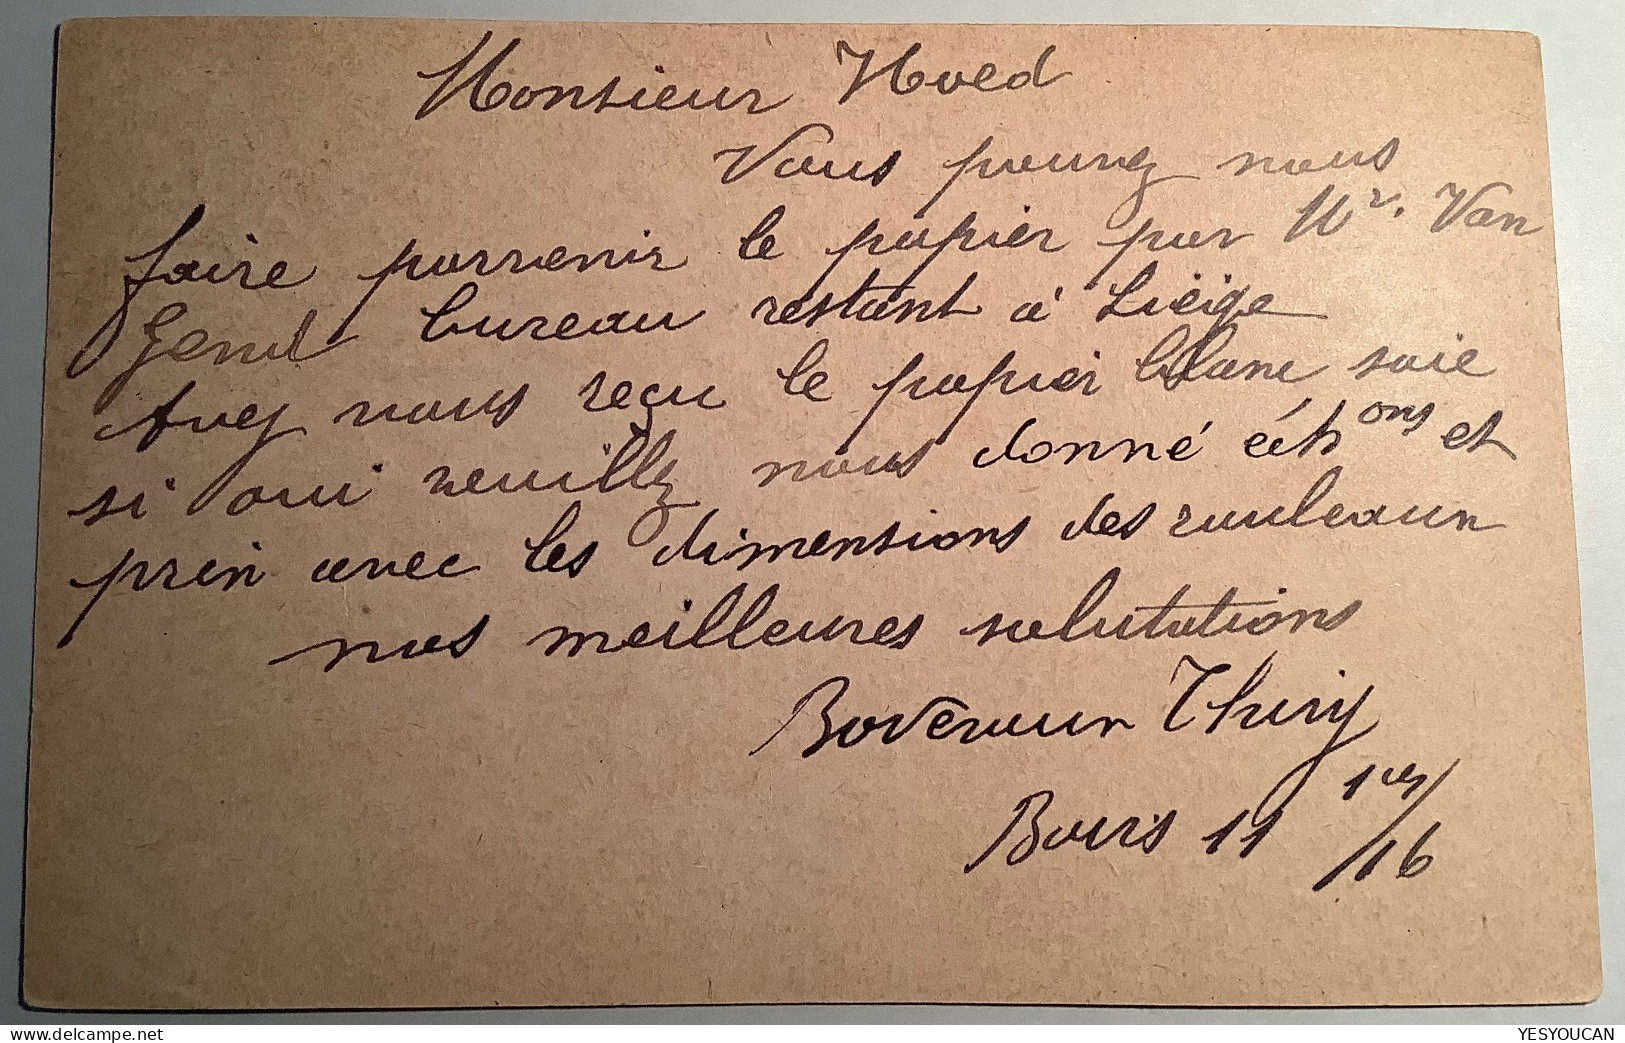 Monsieur Hoed
Vous pouvez nous
faire parvenir le papier par Mr. Van
Gend bureau restant à Liéige
Avez nous reçu le papier blanc soie
si oui veuillez nous donné échons et
prix avec les dimensions des rouleaux
nos meilleures salutations
Boveroux Thiry
11 /16
delcampe.net
YESYOUCAN